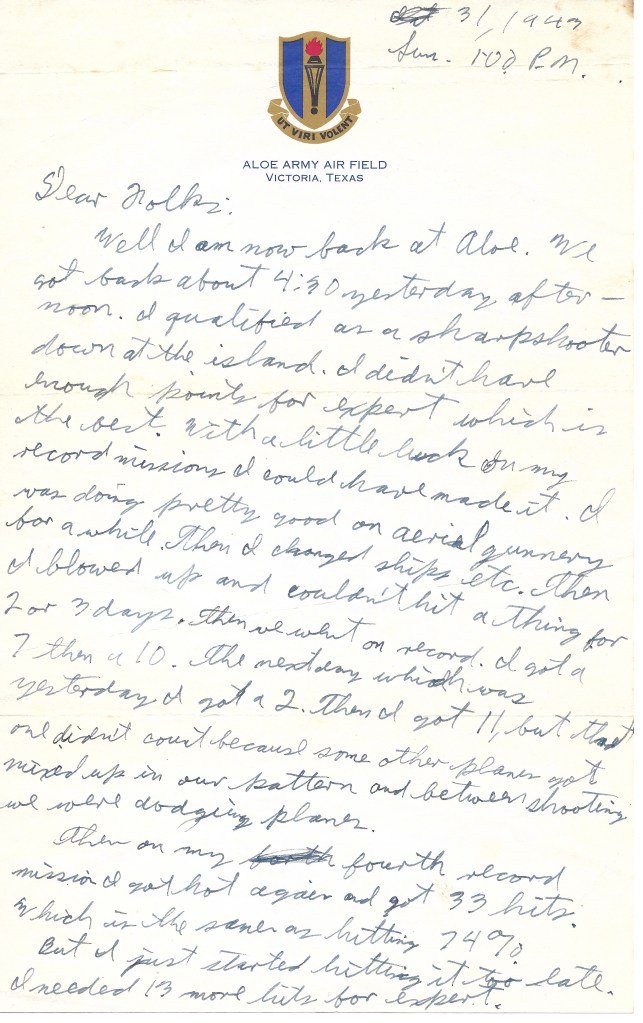 Oct 31, 1943
Sun. 1:00 P.M.
UT VIRI VOLENT
ALOE ARMY AIR FIELD
VICTORIA, TEXAS
Dear Folks:
Well I am now back at Aloe. We
got back about 4:30 yesterday after-
noon. I qualified as a sharpshooter
down at the island. I didn't have
enough points for expert which is
the best. With a little luck on my
record missions I could have made it. I
was doing pretty good on aerial gunnery
for a while. Then I changed ships etc. Then
I blowed up and couldn't hit a thing for
2 or 3 days. Then we went on record. I got a
7 then a 10. The next day which was
yesterday I got a 2. Then I got 11, but that
one didn't count because some other planes got
mixed up in our pattern and between shooting
we were dodging planes.
Then on my fourth record
mission I got hot again and got 33 hits.
Which is the same as hitting 74%
But I just started hitting it too late.
I needed 13 more hits for expert.